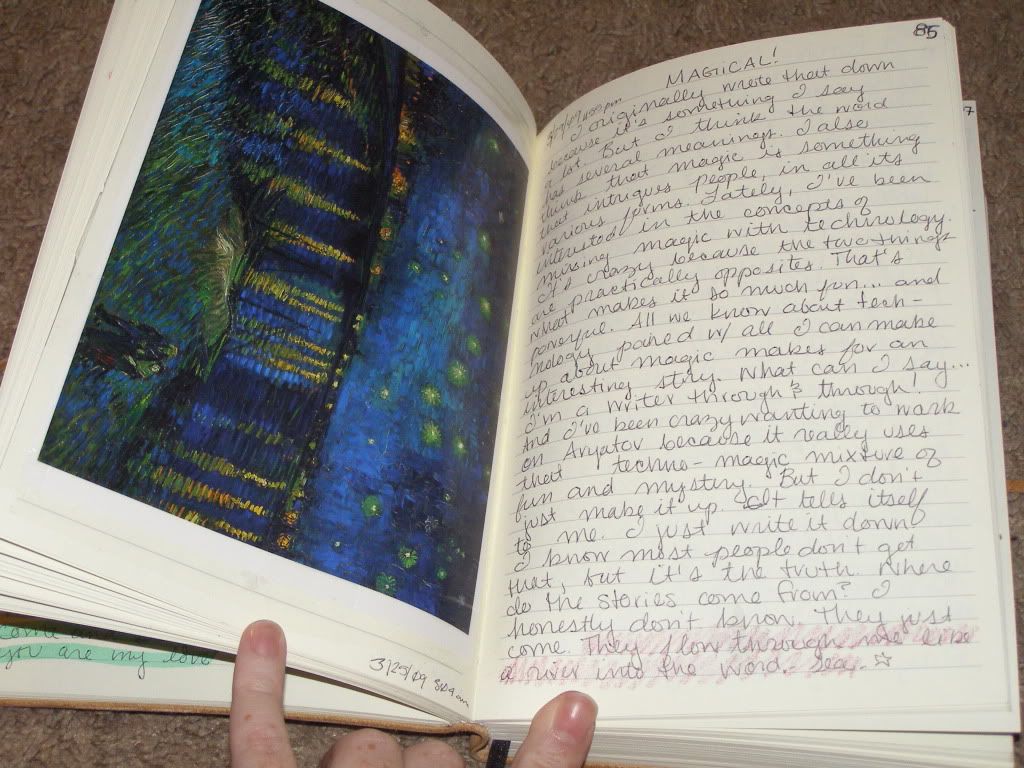 come and
you are my love
3/25/09 8:04 am
85
MAGiiCAL!
11:50 pm
I originally wrote that down
because it's something I say
a lot. But I think the word
has several meanings. I also
think that magic is something
that intrigues people, in all its
various forms. Lately, I've been
interested in the concepts of
mixing magic with technology.
It's crazy because the two things
are practically opposites. That's
what makes it so much fun... and
powerful. All we know about tech-
nology paired w/ all I can make
up about magic makes for an
interesting story. What can I say...
I'm a writer through & through!
And I've been crazy wanting to work
on Aryatov because it really uses
that techno-magic mixture of
fun and mystery. But I don't
just make it up. It tells itself
to me. I just write it down.
I know most people don't get
that, but it's the truth. Where
do the stories come from? I
honestly don't know. They just
come. They flow through me like
a river into the word sea. ☆
7